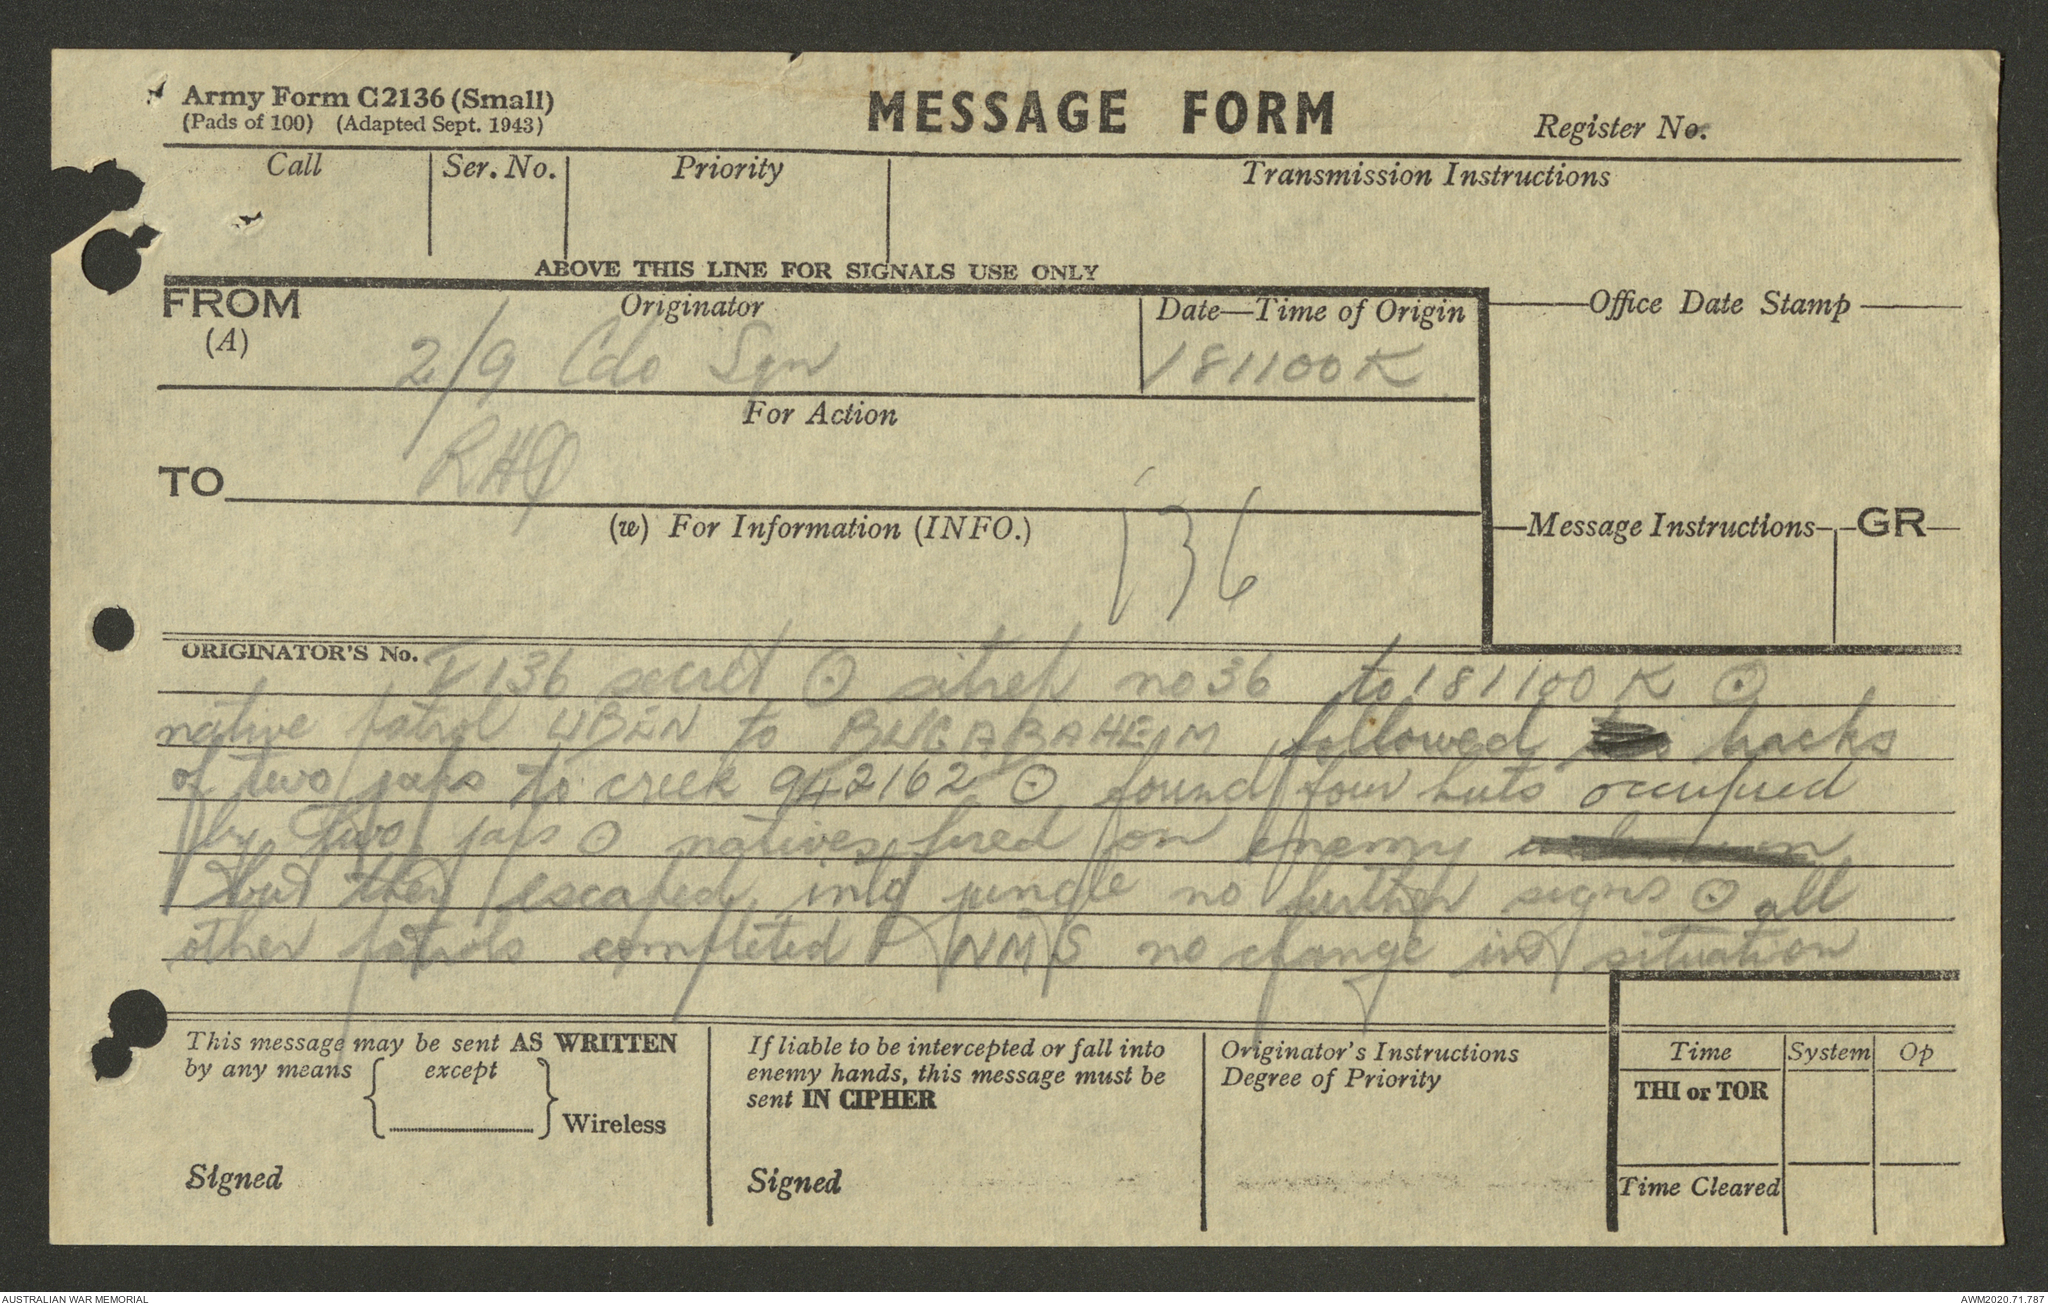 Army Form C2136 (Small)
(Pads of 100) (Adapted Sept. 1943)
MESSAGE FORM
Register No.
Call Ser. No. Priority Transmission Instructions
ABOVE THIS LINE FOR SIGNALS USE ONLY
FROM Originator Date—Time of Origin Office Date Stamp
(A)
2/9 Cdo Sqn 181100K
For Action
RHQ
TO
(w) For Information (INFO.) Message Instructions GR
136
ORIGINATOR'S No.
136 secret ⊙ sitrep no 36 to 181100 K ⊙
native patrol to followed tracks
of two japs to creek 942162 ⊙ found four huts occupied
by two japs ⊙ natives fired on enemy
but they escaped into jungle no further signs ⊙ all
other patrols completed NMS no change in situation
This message may be sent AS WRITTEN
by any means except
Wireless
Signed
If liable to be intercepted or fall into
enemy hands, this message must be
sent IN CIPHER
Signed
Originator's Instructions
Degree of Priority
Time System Op
THI or TOR
Time Cleared
AUSTRALIAN WAR MEMORIAL
AWM2020.71.787